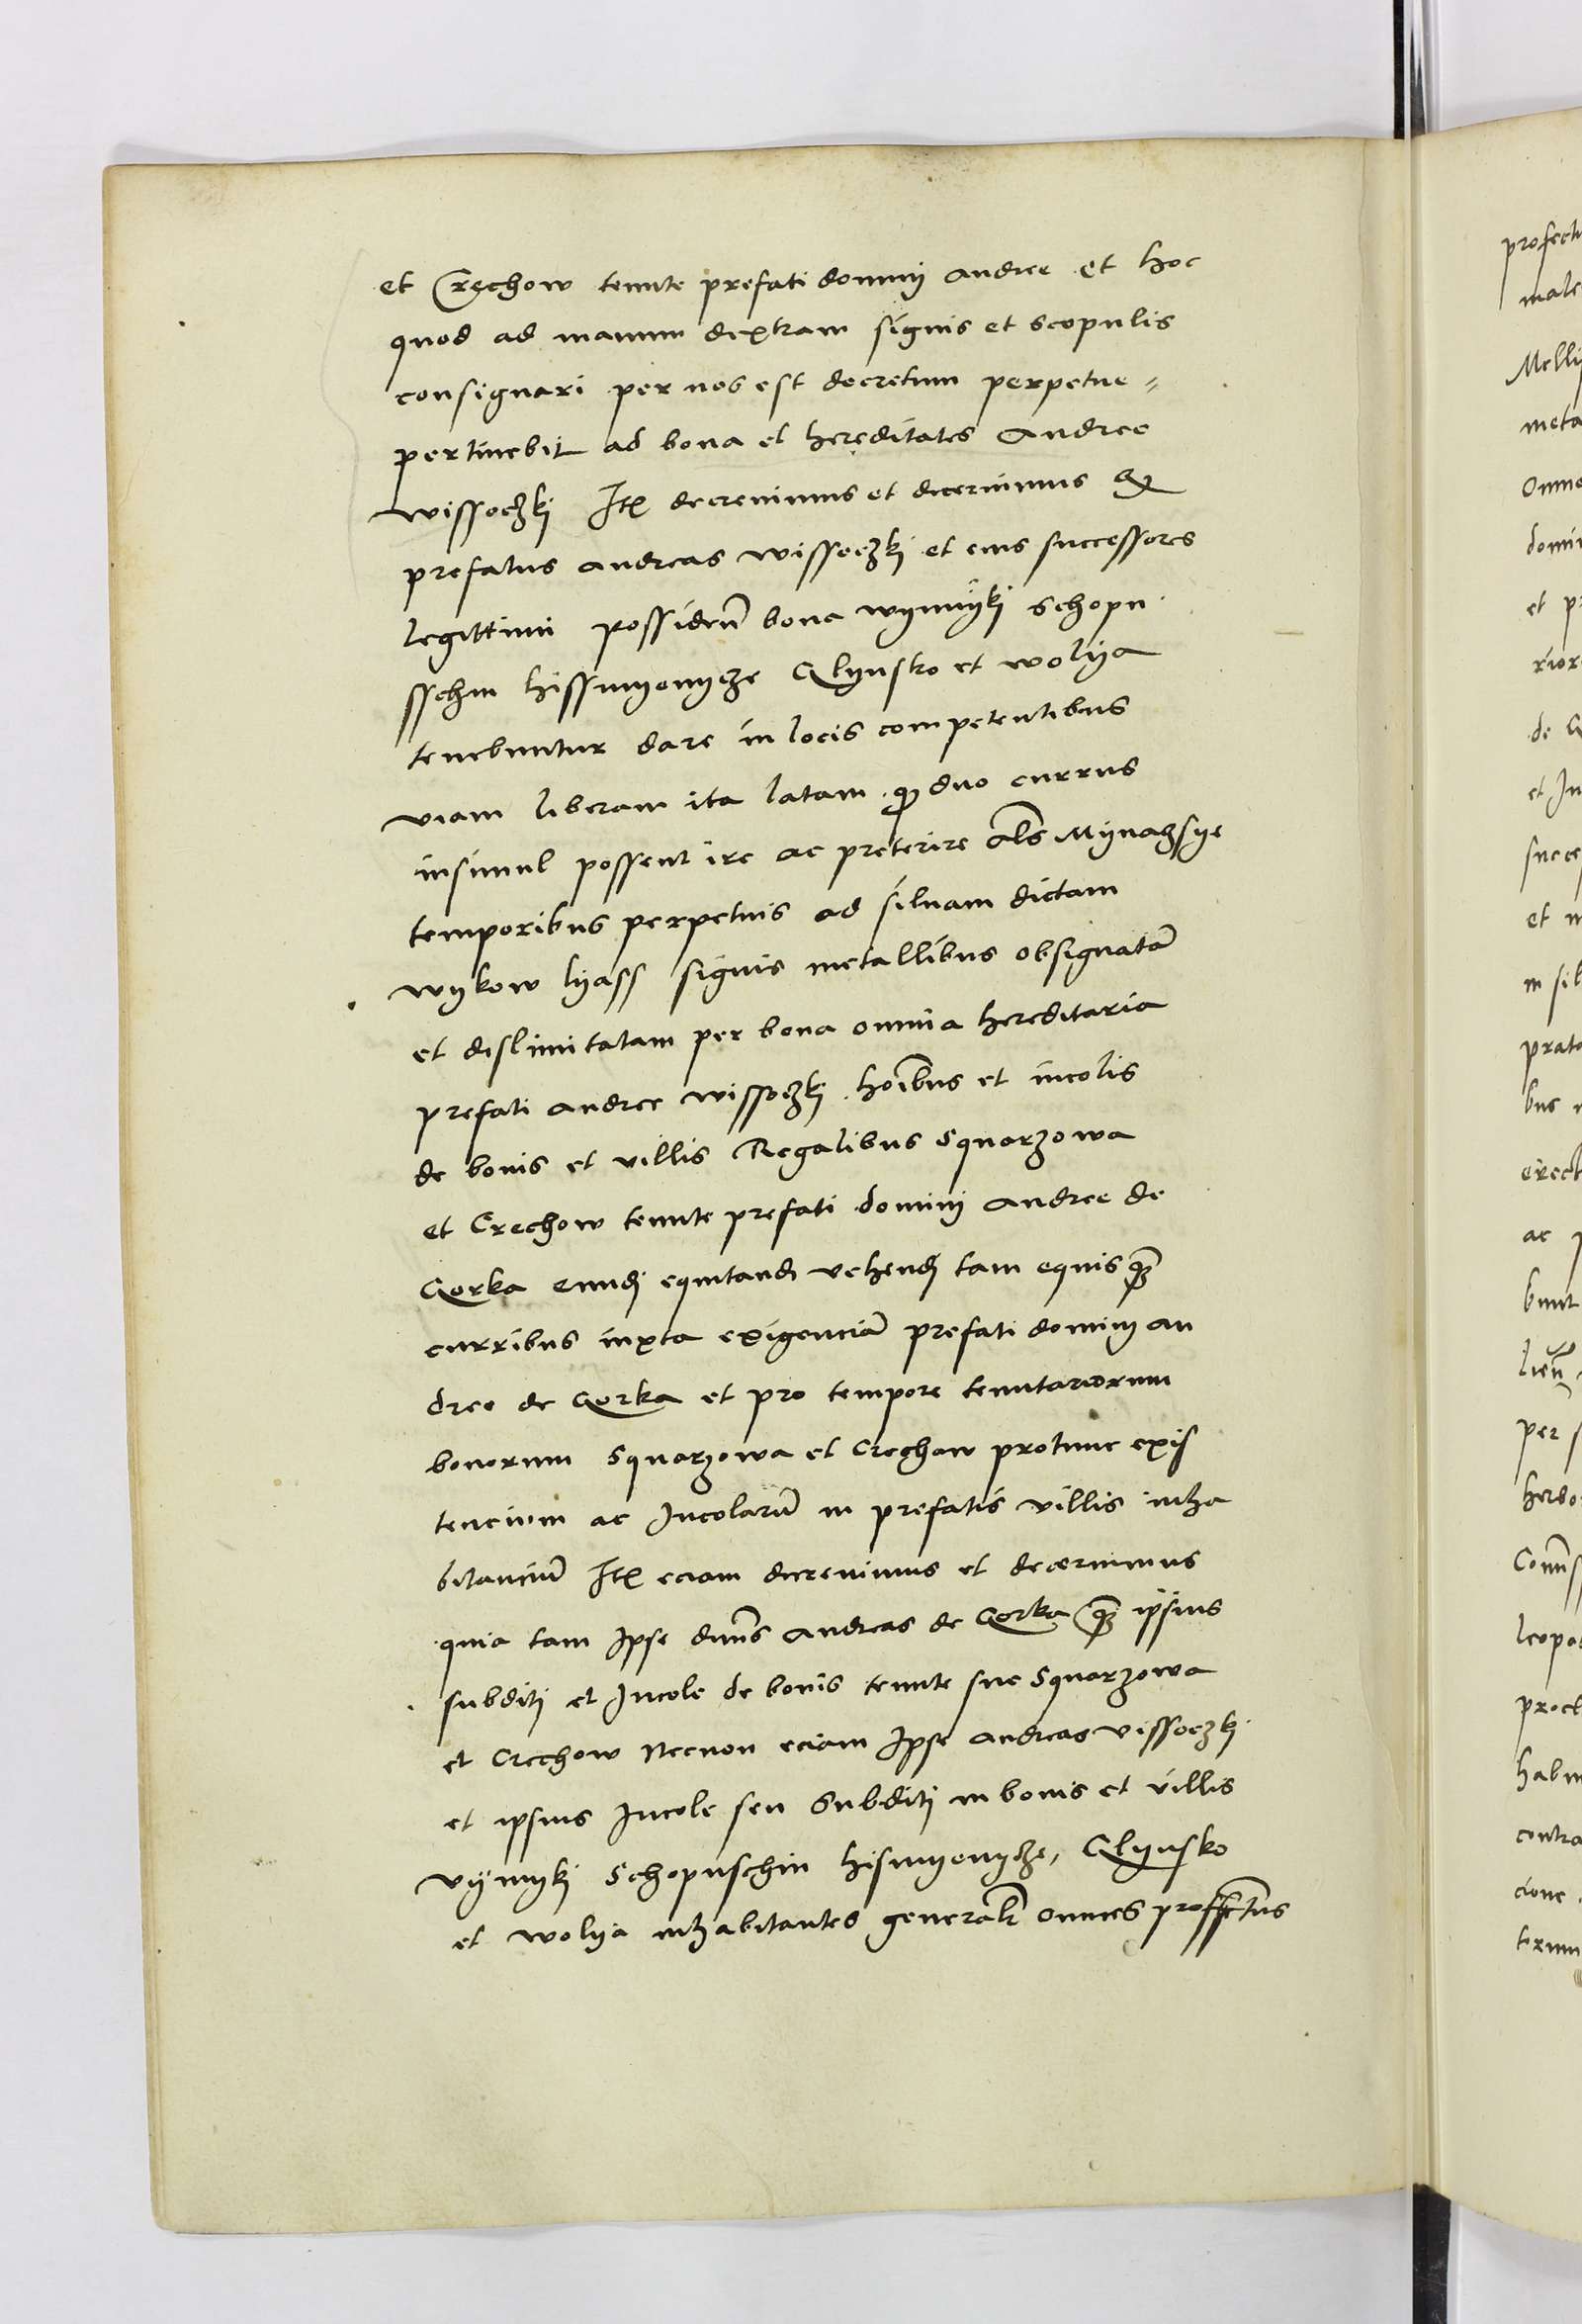 et Crechow tenute prefati dominj andree et hoc
quod ad manum dextram signis et scopulis
consignari per nos est decretum perpetue
pertinebit ad bona et hereditates Andree
wissoczkj Itē decreuimus et decernimus qꝫ
prefatus andreas wissoczkj et eius successores
legittimi possideñ bona wynnykj schopu
sschin hissnyowycze Glynsko et wolya
tenebuntur dare in locis competentibus
viam liberam ita latam qꝫ duo currus
insimul possent ire ac preterire als Mynaczsye
temporibus perpetuis ad siluam dictam
wykow lyass signis metallibus obsignatā
et dislimitatam per bona omnia hereditaria
prefati andree wissoczkj hoībus et incolis
de bonis et villis Regalibus Squarzowa
et Crechow tenute prefati dominj andree de
Gorka eundj equitandi vehendj tam equis qꝫ
curribus iuxta exigenciā prefati dominj an
dree de Gorka et pro tempore tenutariorum
bonorum Squarzowa et Crechow protunc exis
tencium ac Incolarū in prefatis villis inha
bitanciū Itē eciam decreuimus et decernimus
quia tam Ipse dnūs andreas de Gorka qꝫ ipsius
subditj et Incole de bonis tenute sue Squarzowa
et Crechow Necnon eciam Ipse andreas vissoczkj
et ipsius Incole seu Subditj in bonis et villis
vynnykj Schopuschin hisnyowycze, Glynsko
et wolya inhabitantes generalr̄ omnes proffectus